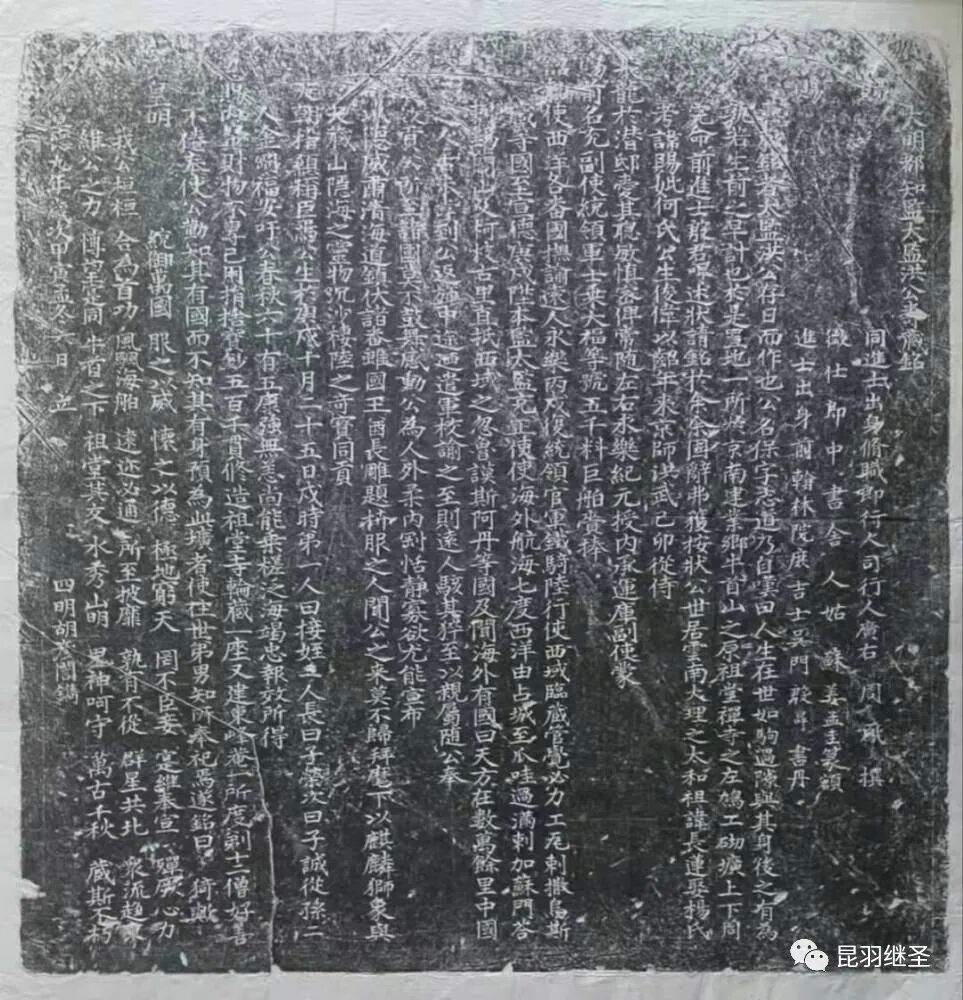 大明都知監太監洪公壽藏銘
同進士出身脩職郎行人司行人廣右 周 撰
徵仕郎中書舍人姑蘇姜孟圭篆額
進士出身前翰林院庶吉士吳門殷昂書丹
太監洪公存日而作也公名保字志道乃自雲曰人生在世如駒過隙與其身後之有為
孰若生前之早計也於是置地一所於京南建業鄉牛首山之原祖堂禪寺之左鳩工砌壙上下周
命前進士殷君昂述狀請銘於余余固辭弗獲按狀公世居雲南大理之太和祖諱長蓮娶楊氏
考諱賜妣何氏公生俊偉以韶年來京師洪武己卯從侍
於潛邸愛其聰敏慎密俾常随左右永樂紀元授內承運庫副使蒙
名充副使統領軍士乘大福等號五千料巨舶賫捧
使西洋各番國撫諭遠人永樂丙戌復統領官軍鐵騎陸行使西域臨藏管覺必力工瓦剌撒烏斯
等國至宣德庚戌陞本監太監充正使使海外航海七度西洋由占城至爪哇過滿剌加蘇門答
及柯枝古里直抵西域之忽魯謨斯阿丹等國及閒海外有國曰天方在數萬餘里中國
人未到公返旆中途迺遣軍校諭之至則遠人駭其猝至以親屬随公奉
貢公所至諸國莫不鼓舞感動公為人外柔內剛恬靜寡欲尤能宣布
德威肅清海道鎮伏諸番雖國王酋長雕題桥服之人聞公之來莫不歸拜麾下以麒麟獅象與
夫藏山隱海之靈物沉沙棲陸之奇寶同貢
指顙稱臣焉公生於庚戌十月二十五日戊時第一人曰接姪三人長曰子榮次曰子誠從孫二
人全曰福安吁公春秋六十有五康強無恙尚能乘槎之海竭忠報效所得
財物不專己用捐捨寶鈔五百千貫修造祖堂寺輪藏一座又建東峰菴一所度剃士二僧好善
不倦奉使公勤知其有國而不知其有身預為此壙者使住世弟男知所奉祀焉遂銘曰 猗歟
皇明 統御萬國 服之以威 懷之以德 極地窮天 罔不臣妾 寔維奉宣 殫厥心力
我公桓桓 合為首功 風飄海舶 遠迩必通 所至披靡 孰有不從 群星共北 衆流趨東
維公之力 傳 同 牛首之下 祖堂其交 水秀山明 鬼神呵守 萬古千秋 藏斯不朽
宣德九年歲次甲寅孟冬 日 立 四明胡 鐫
昆羽继圣